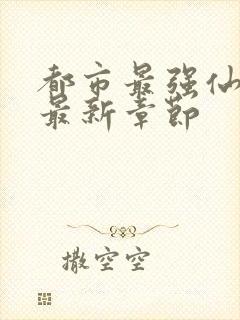 都市最强仙
最新章节
撒空空